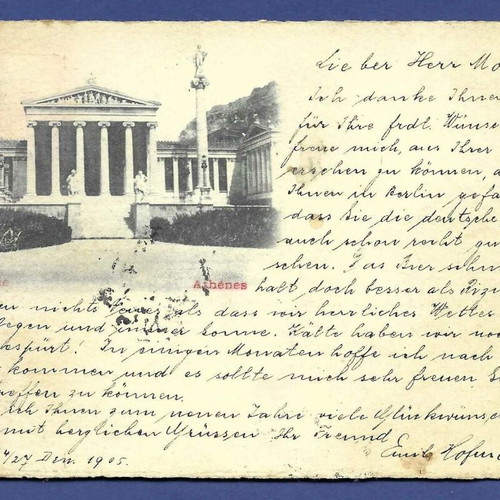 Lieber Herr Mo
Ich danke Ihne
für Ihre frdl. Wünsc
freue mich, aus Ihrer
ersehen zu können, d
Ihnen in Berlin gefä
dass Sie die deutsche
auch schon recht gu
chen. Das Bier schm
Athènes
halt doch besser als Rizin
en nichts als dass wir herrliches Wetter
egen und immer Sonne. Kälte haben wir noc
espürt! In einigen Monaten hoffe ich nach
kommen und es sollte mich sehr freuen S
reffen zu können.
ich Ihnen zum neuen Jahre viele Glückwünsc
mit herzlichen Grüssen Ihr Freund
Emil
/27 Dez. 1905.